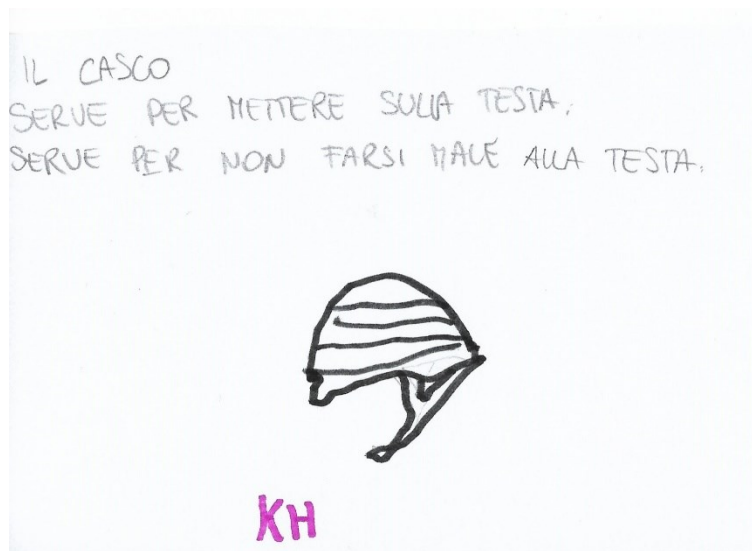 IL CASCO
SERVE PER METTERE SULLA TESTA.
SERVE PER NON FARSI MALE ALLA TESTA.
KH